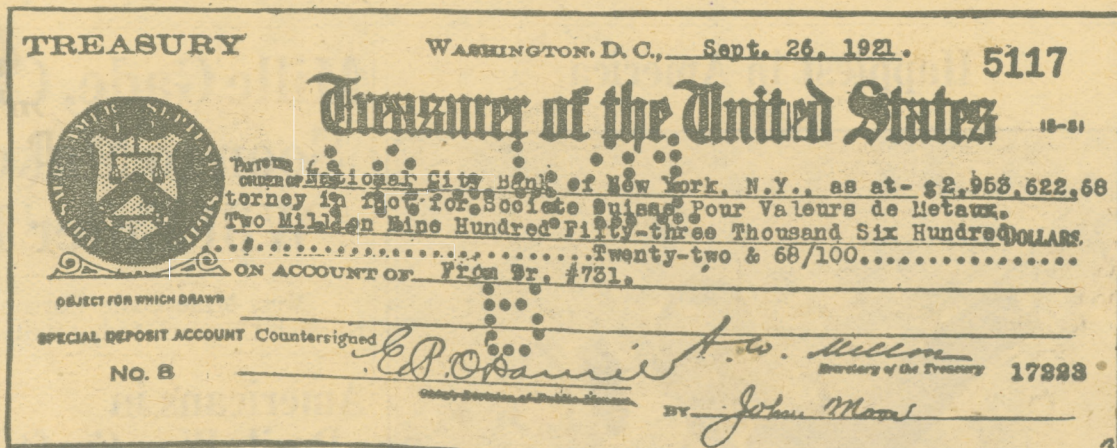 TREASURY
WASHINGTON, D. C., Sept. 26, 1921.
5117
Treasurer of the United States
PAY TO THE ORDER OF National City Bank of New York, N.Y., as at- $2,953,622,68
torney in fact for Societe Suisse Pour Valeurs de Metaux.
Two Million Nine Hundred Fifty-three Thousand Six Hundred DOLLARS.
Twenty-two & 68/100
ON ACCOUNT OF From Tr. #731.
OBJECT FOR WHICH DRAWN
SPECIAL DEPOSIT ACCOUNT
Countersigned
A. W. Mellon
Secretary of the Treasury
No. 8
17223
BY John